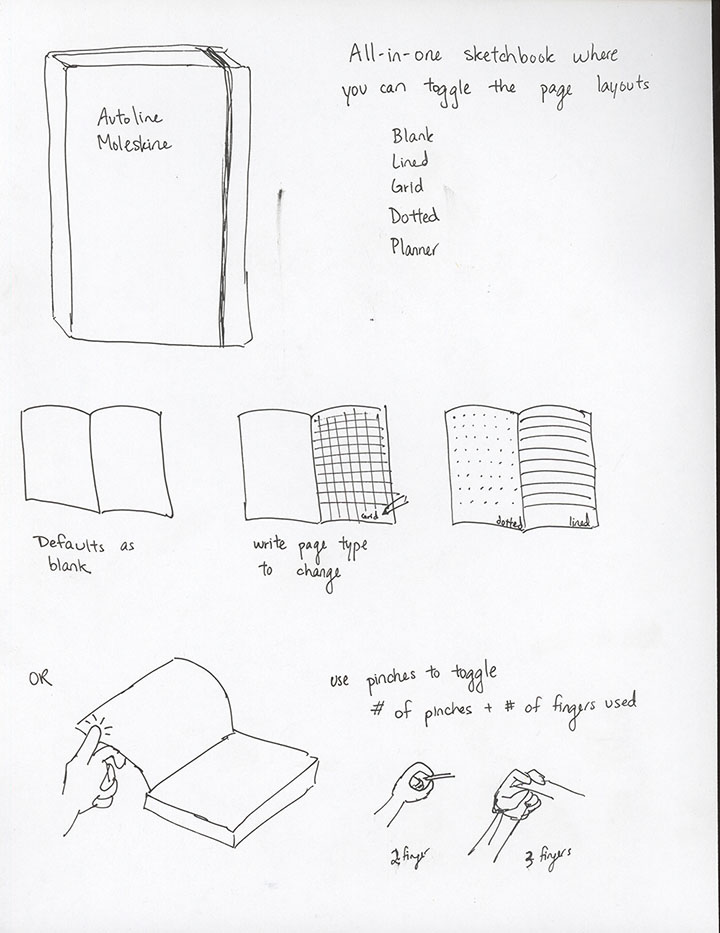 All-in-one sketchbook where
you can toggle the page layouts
Autoline
Moleskine
Blank
Lined
Grid
Dotted
Planner
Grid
dotted
lined
Defaults as
blank
write page type
to change
OR
use pinches to toggle
# of pinches + # of fingers used
2 finger
3 fingers